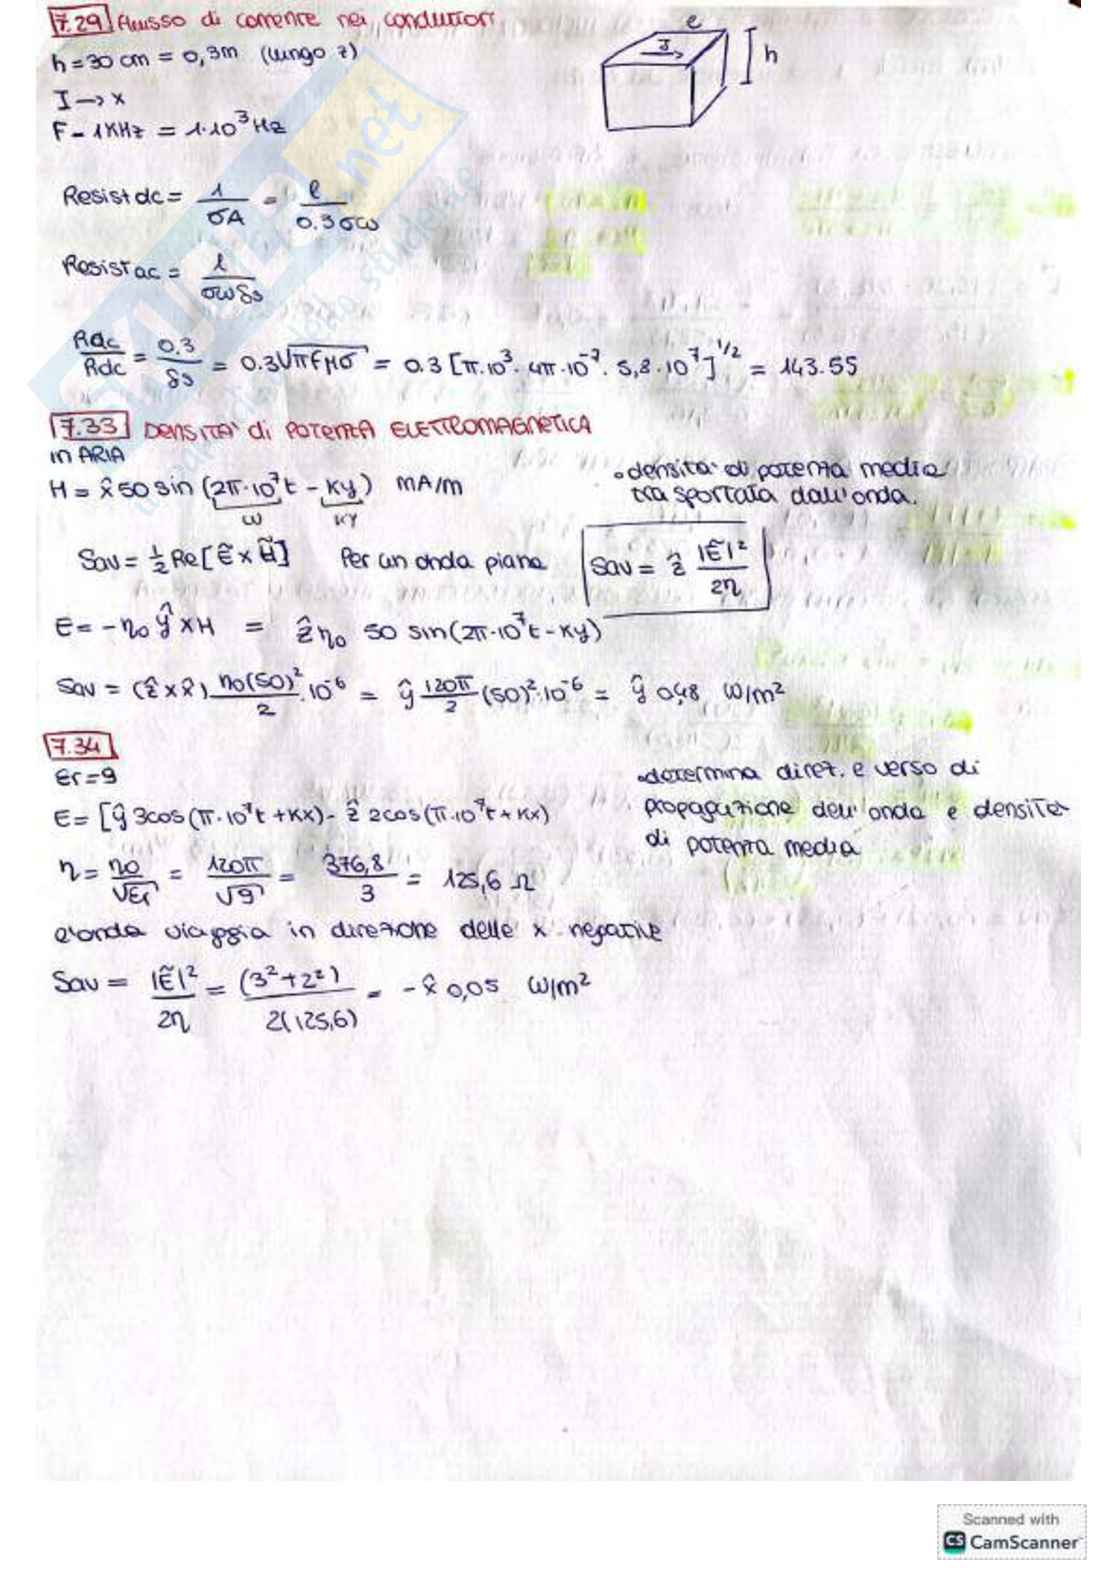 7.29 Flusso di corrente nei conduttori
e
J
h
h = 30 cm = 0,3m (lungo z)
I → x
F - 1KHz = 1·10³ Hz
Resist dc = 1/σA = l/0.3σω
Resist ac = l/σωδs
Rac/Rdc = 0.3/δs = 0.3√πFMσ = 0.3 [π·10³· 4π·10⁻⁷· 5,8·10⁷]^1/2 = 143.55
7.33 DENSITA' di POTENZA ELETTROMAGNETICA
in ARIA
H = x̂ 50 sin (2π·10⁷t - Ky) MA/m
ω KY
• densita' di potenza media
trasportata dall'onda.
Sav = 1/2 Re [Ẽ x H̃] Per un onda piana Sav = ẑ |Ẽ|²/2η
E = - η₀ ŷ x H = ẑ η₀ 50 sin(2π·10⁷t - Ky)
Sav = (ẑ x x̂) η₀(50)²/2 · 10⁻⁶ = ŷ 120π/2 (50)²·10⁻⁶ = ŷ 0,48 W/m²
7.34
Er = 9
• determina direz. e verso di
propagazione dell'onda e densita'
di potenza media
E = [ŷ 3cos(π·10⁷t + Kx) - ẑ 2cos(π·10⁷t + Kx)
η = η₀/√Er = 120π/√9 = 376,8/3 = 125,6 Ω
l'onda viaggia in direzione delle x negative
Sav = |Ẽ|²/2η = (3²+2²)/2(125,6) = - x̂ 0,05 W/m²
Scanned with
CS CamScanner